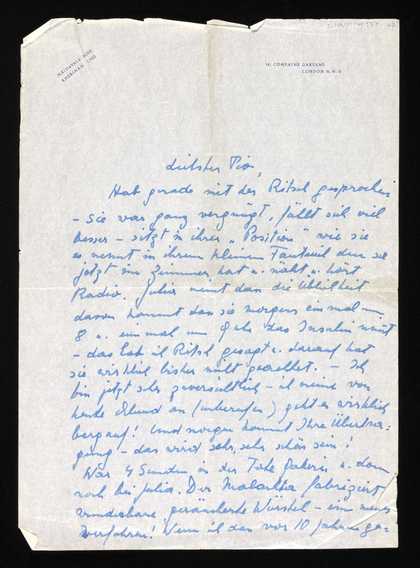 14 COMPAYNE GARDENS
LONDON N.W.6
liebster Pio,
Hab gerade mit der Ritsel gesprochen
– sie war ganz vergnügt, fühlt sich viel
besser – sitzt in ihrer „Position" wie sie
es nennt in ihrem kleinen Fauteuil den sie
jetzt im Zimmer hat u. näht u. hört
Radio. Julia meint dass die Übelkeit
davon kommt dass sie morgens einmal um
8 u. einmal um das Insulin nimmt
– das hab ich Ritsel gesagt u. darauf hat
sie wirklich bisher nicht geachtet. – Ich
bin jetzt sehr zuversichtlich – ich meine von
heute Abend an (unberufen) geht es wirklich
bergauf! Und morgen kommt Ihre Übertra-
gung – das wird sehr, sehr schön sein!
War 4 Stunden in der Tate Gallery u. dann
noch bei Julia. Der fabriziert
wunderbare geräucherte Würstel – ein neues
Verfahren! Wenn ich das vor 10 Jahren ge-